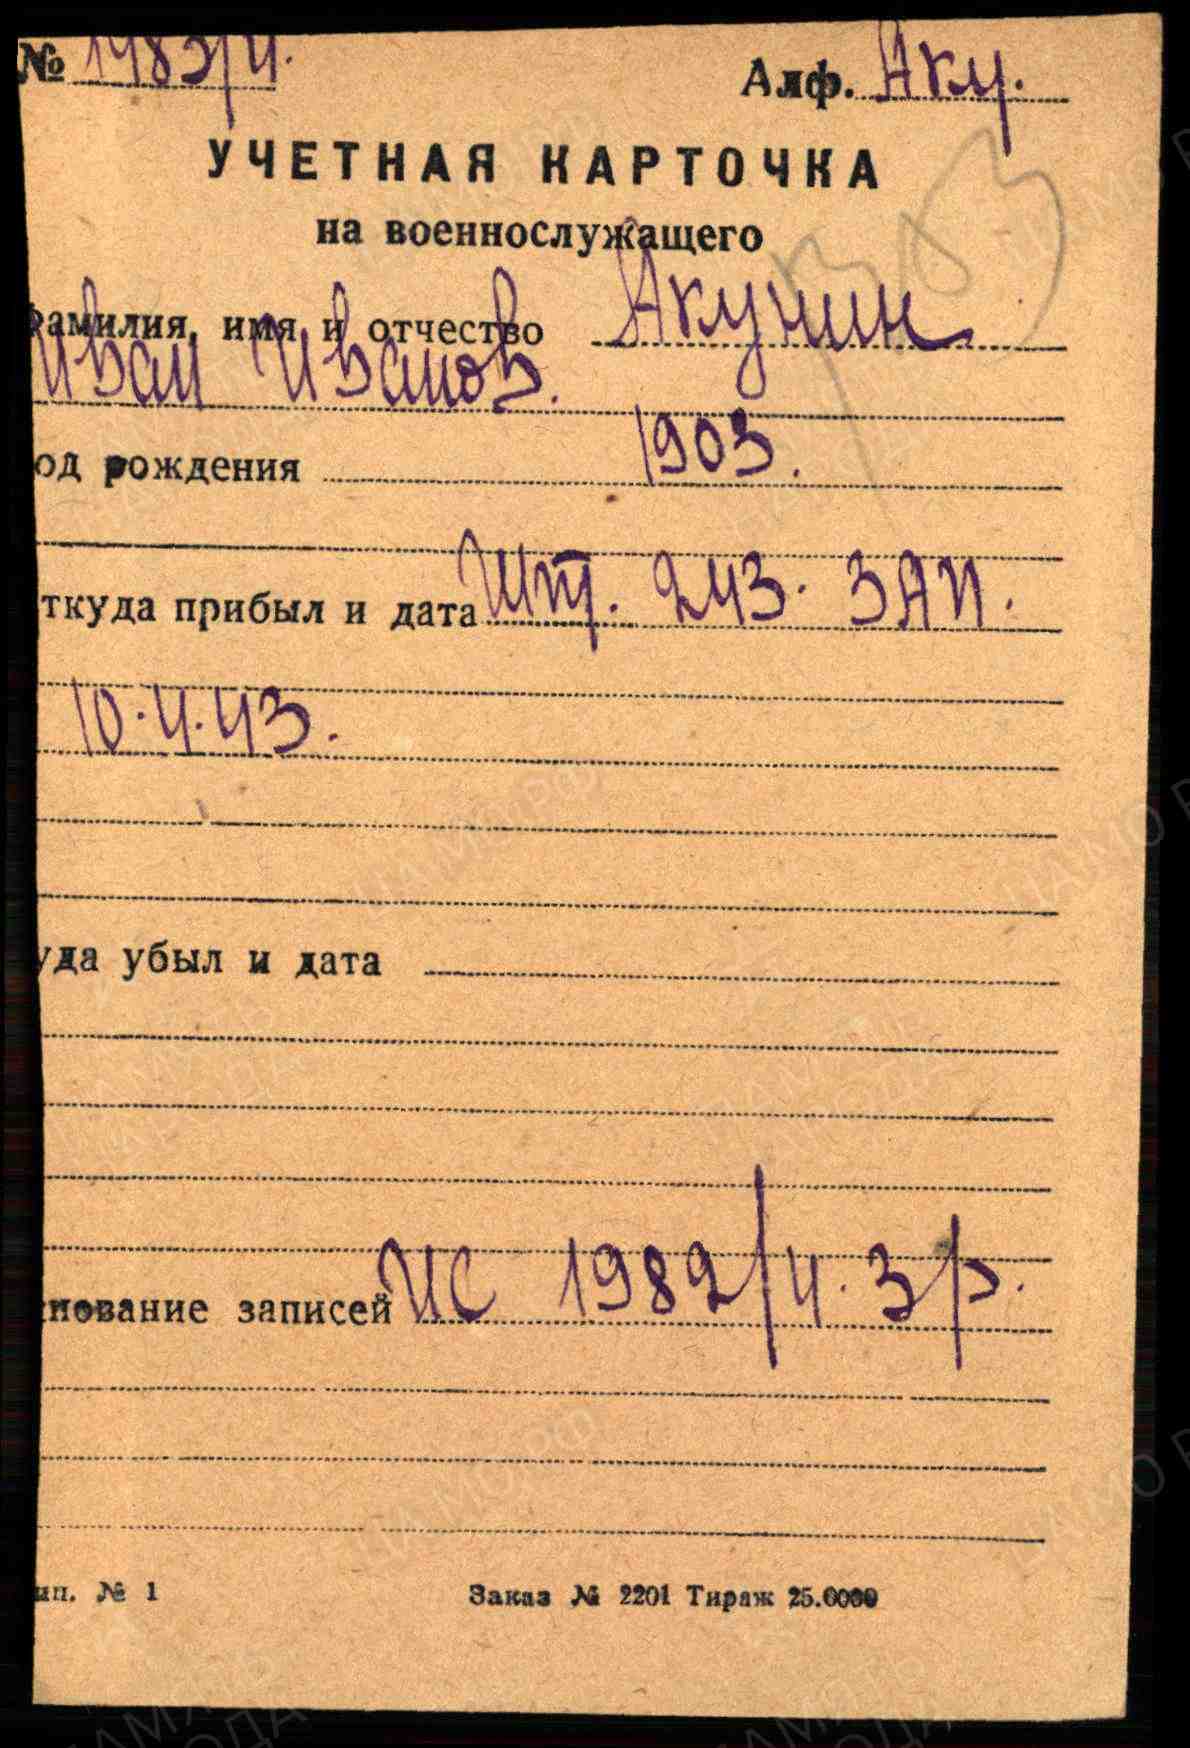 № 1982/4. Алф. Аку.
УЧЕТНАЯ КАРТОЧКА
на военнослужащего
фамилия, имя и отчество Акунин
Иван Иванов.
од рождения 1903.
ткуда прибыл и дата Шт. 243. ЗАП.
10.4.43.
уда убыл и дата
нование записей ИС 1982/4. 3/р.
ип. № 1 Заказ № 2201 Тираж 25.0000